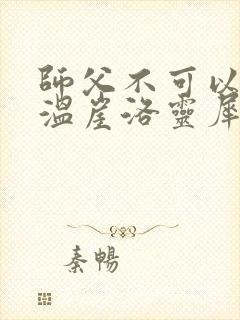 師父不可以
溫崖洛靈犀
秦暢